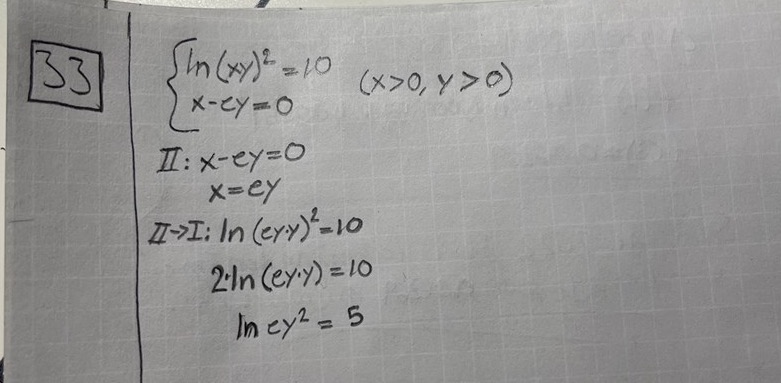 33
ln(xy)² = 10
x-ey=0 (x>0, y>0)
II: x-ey=0
x=ey
II→I: ln(ey·y)²=10
2·ln(ey·y)=10
ln ey² = 5